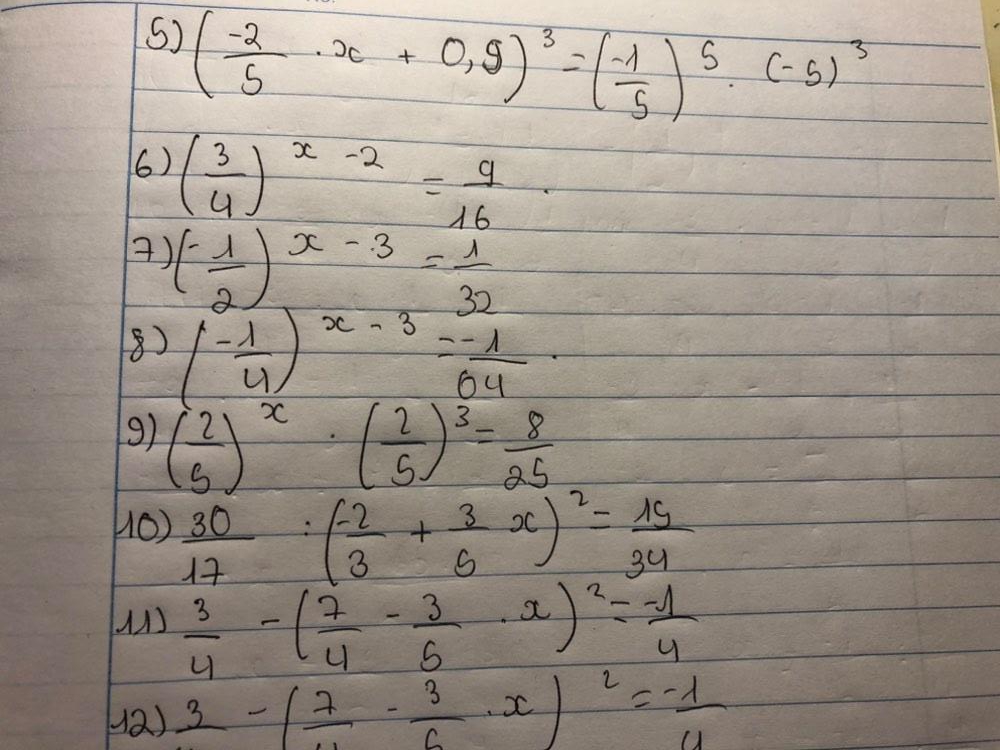 5) (-2/5 · x + 0,9)³ = (-1/5)⁵ · (-5)³
6) (3/4)ˣ⁻² = 9/16 .
7) (-1/2)ˣ⁻³ = 1/32
8) (-1/4)ˣ⁻³ = -1/64 .
9) (2/5)ˣ · (2/5)³ = 8/25
10) 30/17 : (-2/3 + 3/5 x)² = 15/34
11) 3/4 - (7/4 - 3/5 · x)² = -1/4
12) 3/4 - (7/4 - 3/5 · x)² = -1/4